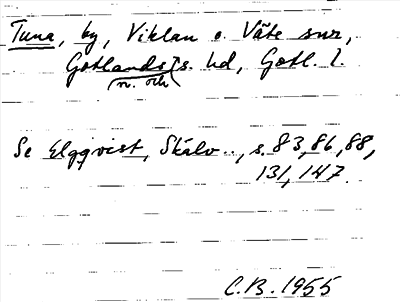 Tuna, by, Viklau o. Väte snr,
Gotlands (s. hd, Gotl. l.
n. och
Se Elqqvist, Skälv.., s. 83, 86, 88,
131, 147.
C.B. 1955